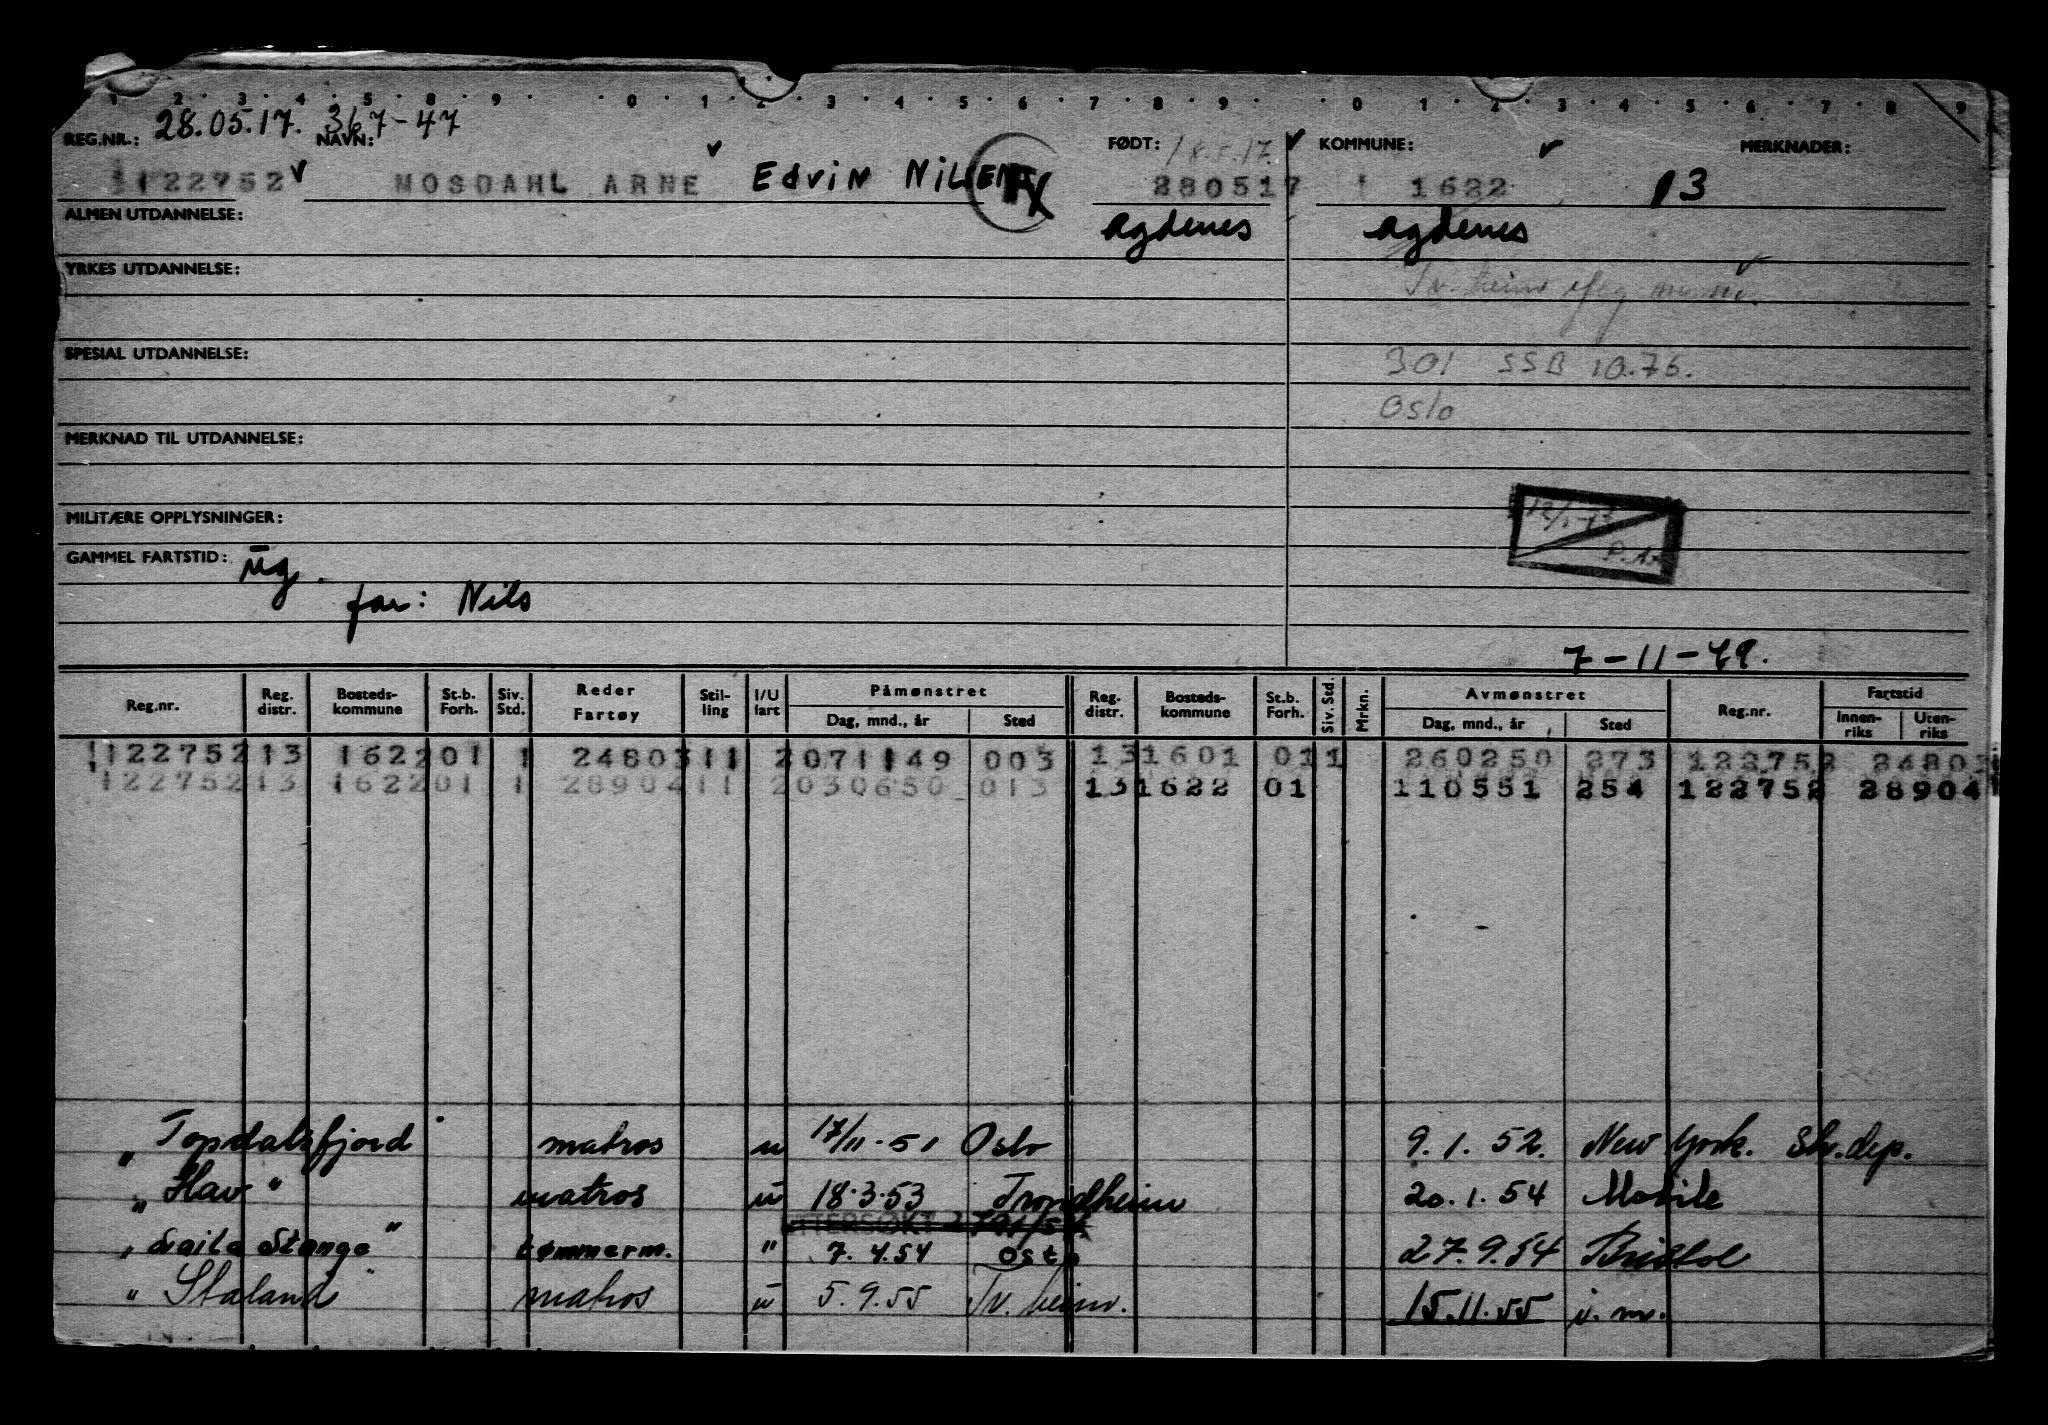 1 2 3 4 5 8 9 0 1 2 3 4 5 6 7 8 9 0 1 2 3 4 5 6 7 8 9
REG.NR.: 28.05.17. 367-47 NAVN: FØDT: 18.5.17. KOMMUNE: MERKNADER:
122752 MOSDAHL ARNE Edvin 280517 1622 13
ALMEN UTDANNELSE: Agdenes Agdenes
YRKES UTDANNELSE:
SPESIAL UTDANNELSE: 301 SSB 10.76.
Oslo
MERKNAD TIL UTDANNELSE:
MILITÆRE OPPLYSNINGER:
GAMMEL FARTSTID: ug.
far: Nils
7-11-49.
Reg.nr. Reg. distr. Bosteds-kommune St.b. Forh. Siv. Std. Reder Fartøy Stil-ling I/U fart Påmønstret Dag, mnd., år Sted Reg. distr. Bosteds-kommune St.b. Forh. Siv. Std. Mrkn. Avmønstret Dag, mnd., år Sted Reg.nr. Fartstid Innen-riks Uten-riks
122752 13 1622 01 1 24803 11 2 071149 003 13 1601 01 1 260250 273 122752 24803
122752 13 1622 01 1 28904 11 2 030650 013 13 1622 01 110551 254 122752 28904
"Topdalsfjord" matros u 17/11-51 Oslo 9.1.52. New York. Sk.dep.
"Hav" matros u 18.3.53 Trondheim 20.1.54 Mobile
"Laila Stange" tømmerm. " 7.4.54 Oslo 27.9.54 Bristol
"Staland" matros u 5.9.55 Tr.heim. 15.11.55 u.m.